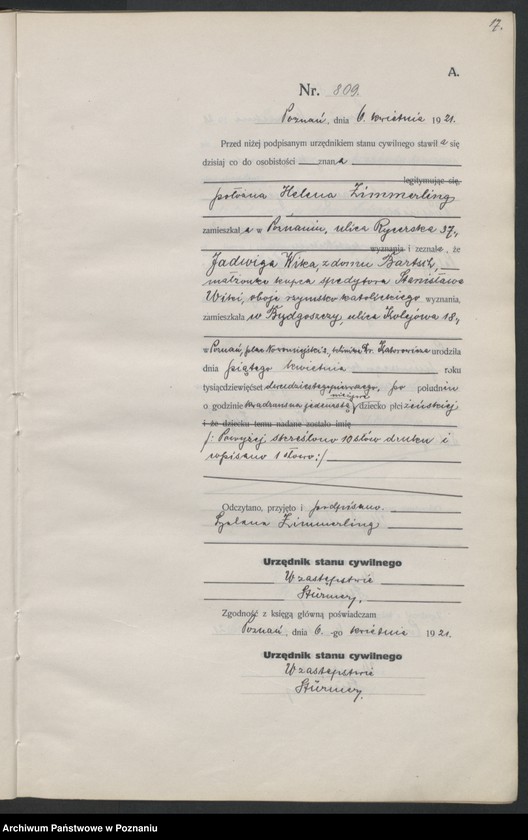 17.
A.
Nr. 809.
Poznań, dnia 6. kwietnia 1921.
Przed niżej podpisanym urzędnikiem stanu cywilnego stawiła się
dzisiaj co do osobistości znana
legitymując się,
położna Helena Zimmerling
zamieszkała w Poznaniu, ulica Rycerska 37,
wyznania i zeznała, że
Jadwiga Witka, z domu Bartsch,
małżonka kupca spedytora Stanisława
Witki, oboje rzymsko katolickiego wyznania,
zamieszkała w Bydgoszczy, ulica Kolejowa 18,
w Poznań, plac klinice Dr. urodziła
dnia piątego kwietnia roku
tysiącdziewięćset dwudziestegopierwszego, po południu
o godzinie dziecko płci żeńskiej
i że dziecku temu nadane zostało imię
/: Powyżej skreślono 10 słów druku i
wpisano 1 słowo :/
Odczytano, przyjęto i podpisano.
Helena Zimmerling
Urzędnik stanu cywilnego
W zastępstwie
Stürmer.
Zgodność z księgą główną poświadczam
Poznań, dnia 6.-go kwietnia 1921.
Urzędnik stanu cywilnego
W zastępstwie
Stürmer.
Archiwum Państwowe w Poznaniu